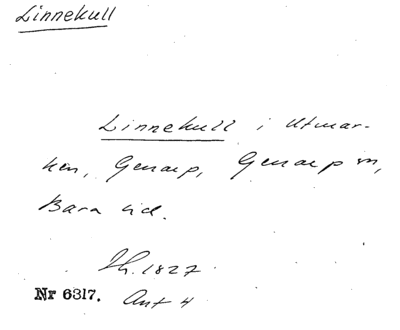 Linnekull
Linnekull i Utmar-
ken, Genarp, Genarp sn,
Bara hd.
Sk. 1827
Nr 6317. Ant 4